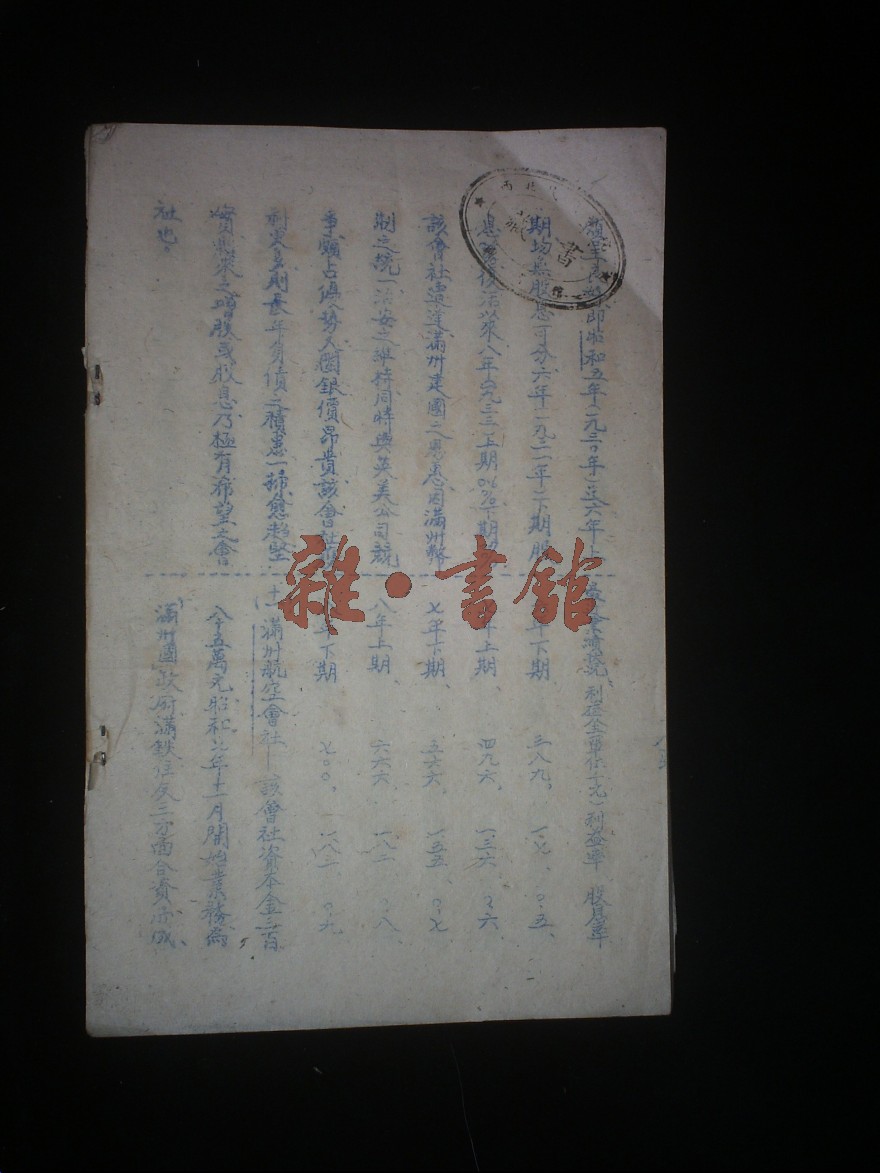 昭和五年(一九三〇年)六年上
期均無股息可分六年(一九三一年)下期股
以來八年(一九三三)上期 下期
該會社遭逢滿州建國之恩惠因滿州幣
制之統一治安之維持同時與英美公司競
爭獨占優勢又國銀價昂貴該會社
利更多則長年負債之積患一掃愈趨堅
實將來之增股或股息乃極有希望之會
社也。
利益金(單位千元)利益率 股息率
年下期 三八九、 一〇七、 〇・五、
上期、 四九六、 一三六 〇・六
七年下期、 五六六、 一五五、 〇・七
八年上期、 六六六 一八二 〇・八、
年下期 七〇〇、 一八三、 〇・九
十一、滿州航空會社—該會社資本金三百
八十五萬元昭和七年十一月開始業務為
滿州國政府滿鐵住友三方面合資而成、
藏書
雜·書館